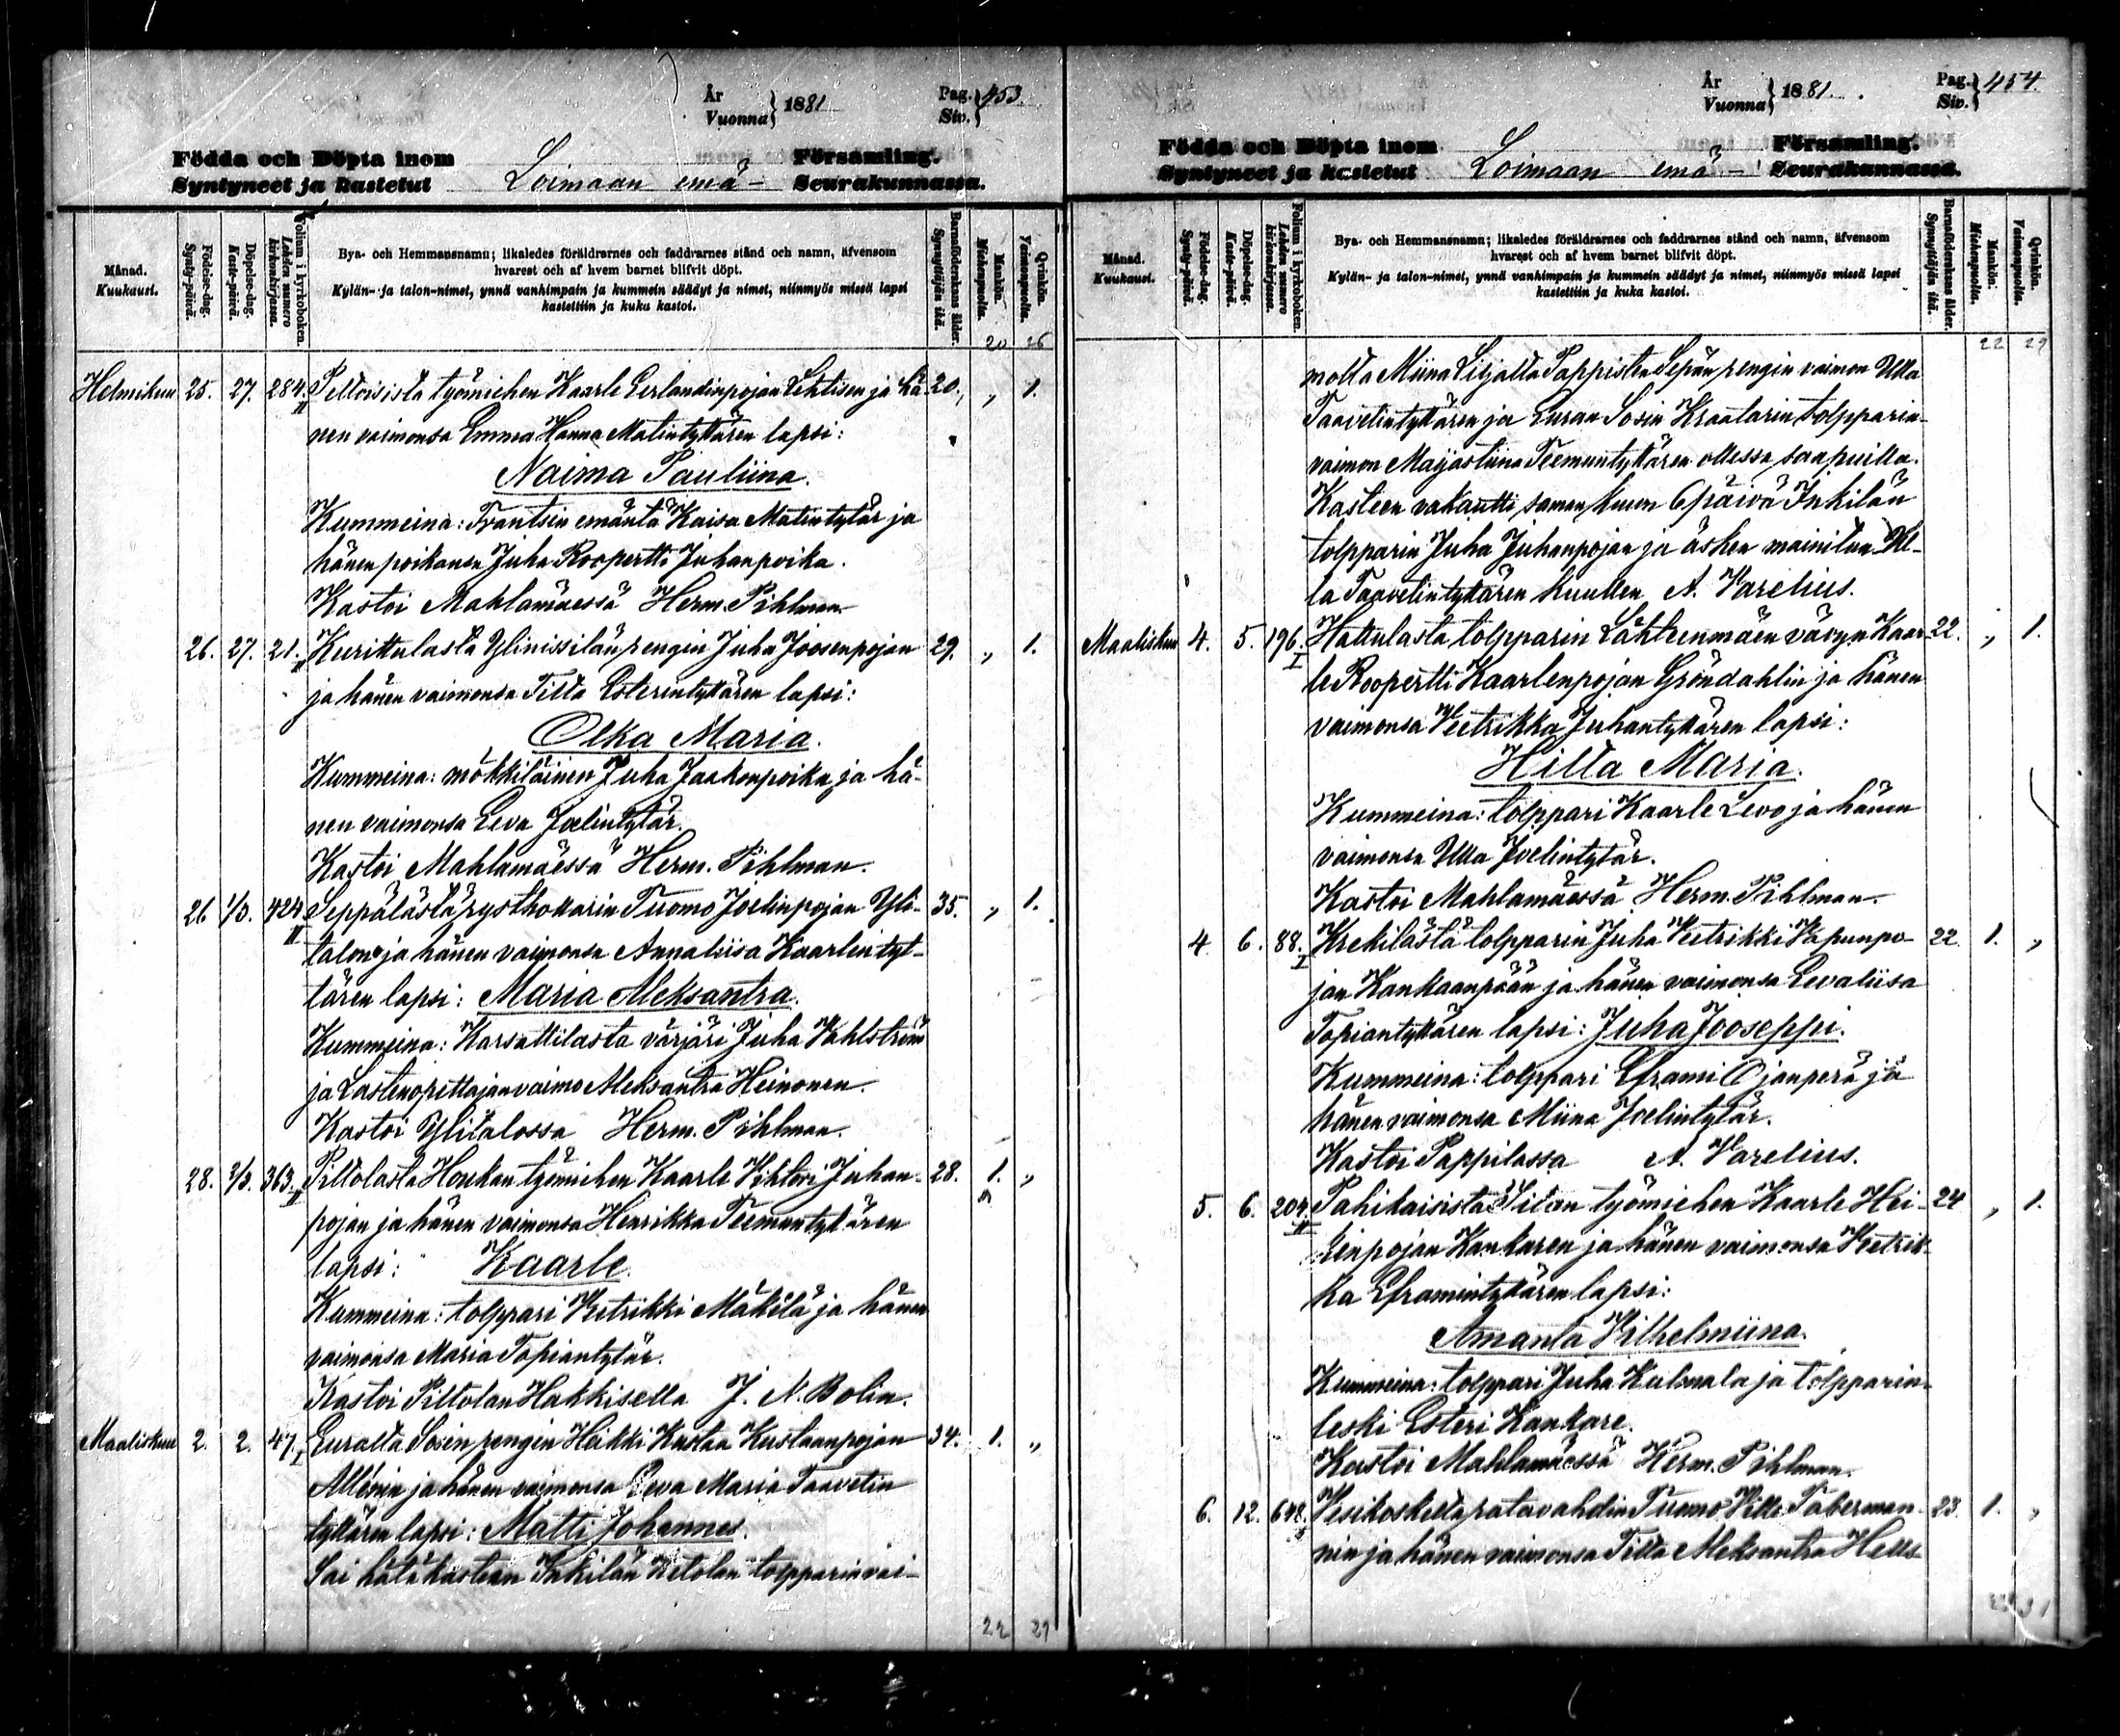 År
Vuonna } 1881 Pag. Siv. } 453.
Födda och Döpta inom Församling.
Syntyneet ja kastetut Loimaan emä- Seurakunnassa.
Månad. Kuukausi.
Födelse-dag. Synty-päivä.
Döpelse-dag. Kaste-päivä.
Folium i kyrkoboken. Lehden numero kirkonkirjassa.
Bya- och Hemmansnamn; likaledes föräldrarnes och faddrarnes stånd och namn, äfvensom
hvarest och af hvem barnet blifvit döpt.
Kylän- ja talon-nimet, ynnä vanhimpain ja kummein säädyt ja nimet, niinmyös missä lapsi
kastettiin ja kuka kastoi.
Barnföderskans ålder. Synnyttäjän ikä.
Mankön. Miehenpuolia.
Qvinkön. Vaimonpuolia.
20 26
Helmikuu 25. 27. 284. II Peltoisista työmiehen Kaarle Eerlandinpojan Lehtisen ja hä- 20. „ 1.
nen vaimonsa Emma Hanna Matintyttären lapsi:
Naima Pauliina.
Kummeina: Frantsin emäntä Kaisa Matintytär ja
hänen poikansa Juha Roopertti Juhanpoika.
Kastoi Mahlamäessä Herm. Pihlman
26. 27. 21. II Kurittulasta Ylinissilän rengin Juha Joosenpojan 29. „ 1.
ja hänen vaimonsa Tilta Esterintyttären lapsi:
Olka Maria.
Kummeina: mökkiläinen Juha Jaakonpoika ja hä-
nen vaimonsa Eeva Joelintytär.
Kastoi Mahlamäessä Herm. Pihlman.
26 1/3. 424 II Seppälästä rysthollarin Tuomo Joelinpojan Yli- 35. „ 1.
talon ja hänen vaimonsa Annaliisa Kaarlentyt-
tären lapsi: Maria Aleksantra.
Kummeina: Karsattilasta värjäri Juha Vahlström
ja Lastenopettajan vaimo Aleksantra Heinonen.
Kastoi Ylitalossa Herm. Pihlman.
28. 3/3. 363. II Piltolasta Honkan työmiehen Kaarle Vihtori Juhan- 28. 1. „
pojan ja hänen vaimonsa Henrikka Teemuntyttären
lapsi: Kaarle.
Kummeina: tolppari Vetrikki Mäkilä ja hänen
vaimonsa Maria Topiantytär.
Kastoi Piltolan Hakkisella J. N. Bolin.
Maaliskuu 2. 2. 47. I Euralta Sosin rengin Heikki Kustaa Kustaanpojan 34. 1. „
Allénin ja hänen vaimonsa Eeva Maria Taavetin
tyttären lapsi: Matti Johannes.
Sai hätäkasteen Inkilän Ketolan tolpparin vai-
22 29
År
Vuonna } 1881. Pag. Siv. } 454.
Födda och Döpta inom Församling.
Syntyneet ja kastetut Loimaan emä- Seurakunnassa.
Månad. Kuukausi.
Födelse-dag. Synty-päivä.
Döpelse-dag. Kaste-päivä.
Folium i kyrkoboken. Lehden numero kirkonkirjassa.
Bya- och Hemmansnamn; likaledes föräldrarnes och faddrarnes stånd och namn, äfvensom
hvarest och af hvem barnet blifvit döpt.
Kylän- ja talon-nimet, ynnä vanhimpain ja kummein säädyt ja nimet, niinmyös missä lapsi
kastettiin ja kuka kastoi.
Barnföderskans ålder. Synnyttäjän ikä.
Mankön. Miehenpuolia.
Qvinkön. Vaimonpuolia.
22 29
molta Miina Liisalta Pappisten Sepän rengin vaimon Ulla
Taavetintyttären ja Euran Sosin Kraatarin tolpparin-
vaimon Maijastiina Teemuntyttären ollessa saapuilla.
Kasteen vakautti saman kuun 6 päivä Inkilän
tolpparin Juha Juhanpojan ja äsken mainitun Ul-
la Taavetintyttären kuullen A. Varelius.
Maaliskuu 4. 5. 196. I Hattulasta tolpparin Lähteenmäen vävyn Kaar- 22. „ 1.
le Roopertti Kaarlenpojan Gröndahlin ja hänen
vaimonsa Vetrikka Juhantyttären lapsi:
Hilta Maria.
Kummeina: tolppari Kaarle Levo ja hänen
vaimonsa Ulla Joelintytär.
Kastoi Mahlamäessä Herm. Pihlman
4 6. 88. I Krekilästä tolpparin Juha Vetrikki Vapunpo- 22. 1. „
jan Kankaanpään ja hänen vaimonsa Eevaliisa
Topiantyttären lapsi: Juha Jooseppi.
Kummeina: tolppari Eframi Ojanperä ja
hänen vaimonsa Miina Joelintytär.
Kastoi Pappilassa A. Varelius.
5. 6. 204. II työmiehen Kaarle Hei- 24 „ 1.
kinpojan Kankaren ja hänen vaimonsa Vetrik-
ka Eframintyttären lapsi:
Amanta Vilhelmiina.
Kummeina: tolppari Juha Kulmala ja tolpparin-
leski Esteri Kankare.
Kastoi Mahlamäessä Herm. Pihlman.
6. 12. 648. Vesikoskelta ratavahdin Tuomo Ville Taberman- 23. 1. „
nin ja hänen vaimonsa Tilta Aleksantra Hells
31